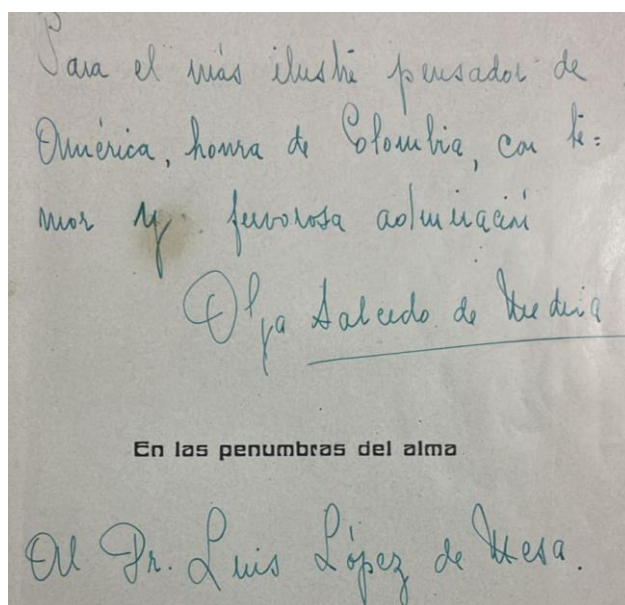 Para el más ilustre pensador de
América, honra de Colombia, con te=
mor y fervorosa admiración
Olga Salcedo de Medina
En las penumbras del alma
Al Dr. Luis López de Mesa.